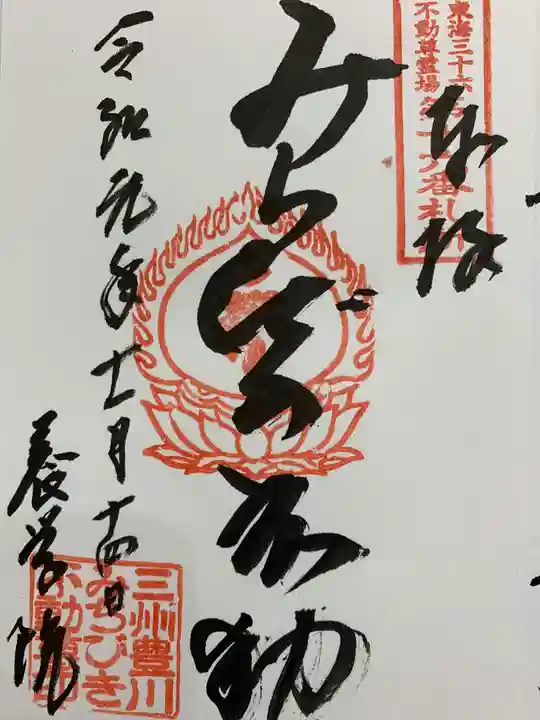 奉拝
東海三十六
不動尊霊場
第十六番札所
みちびき不動
令和元年十一月十四日
養学院
三州豊川
みちびき
不動尊印